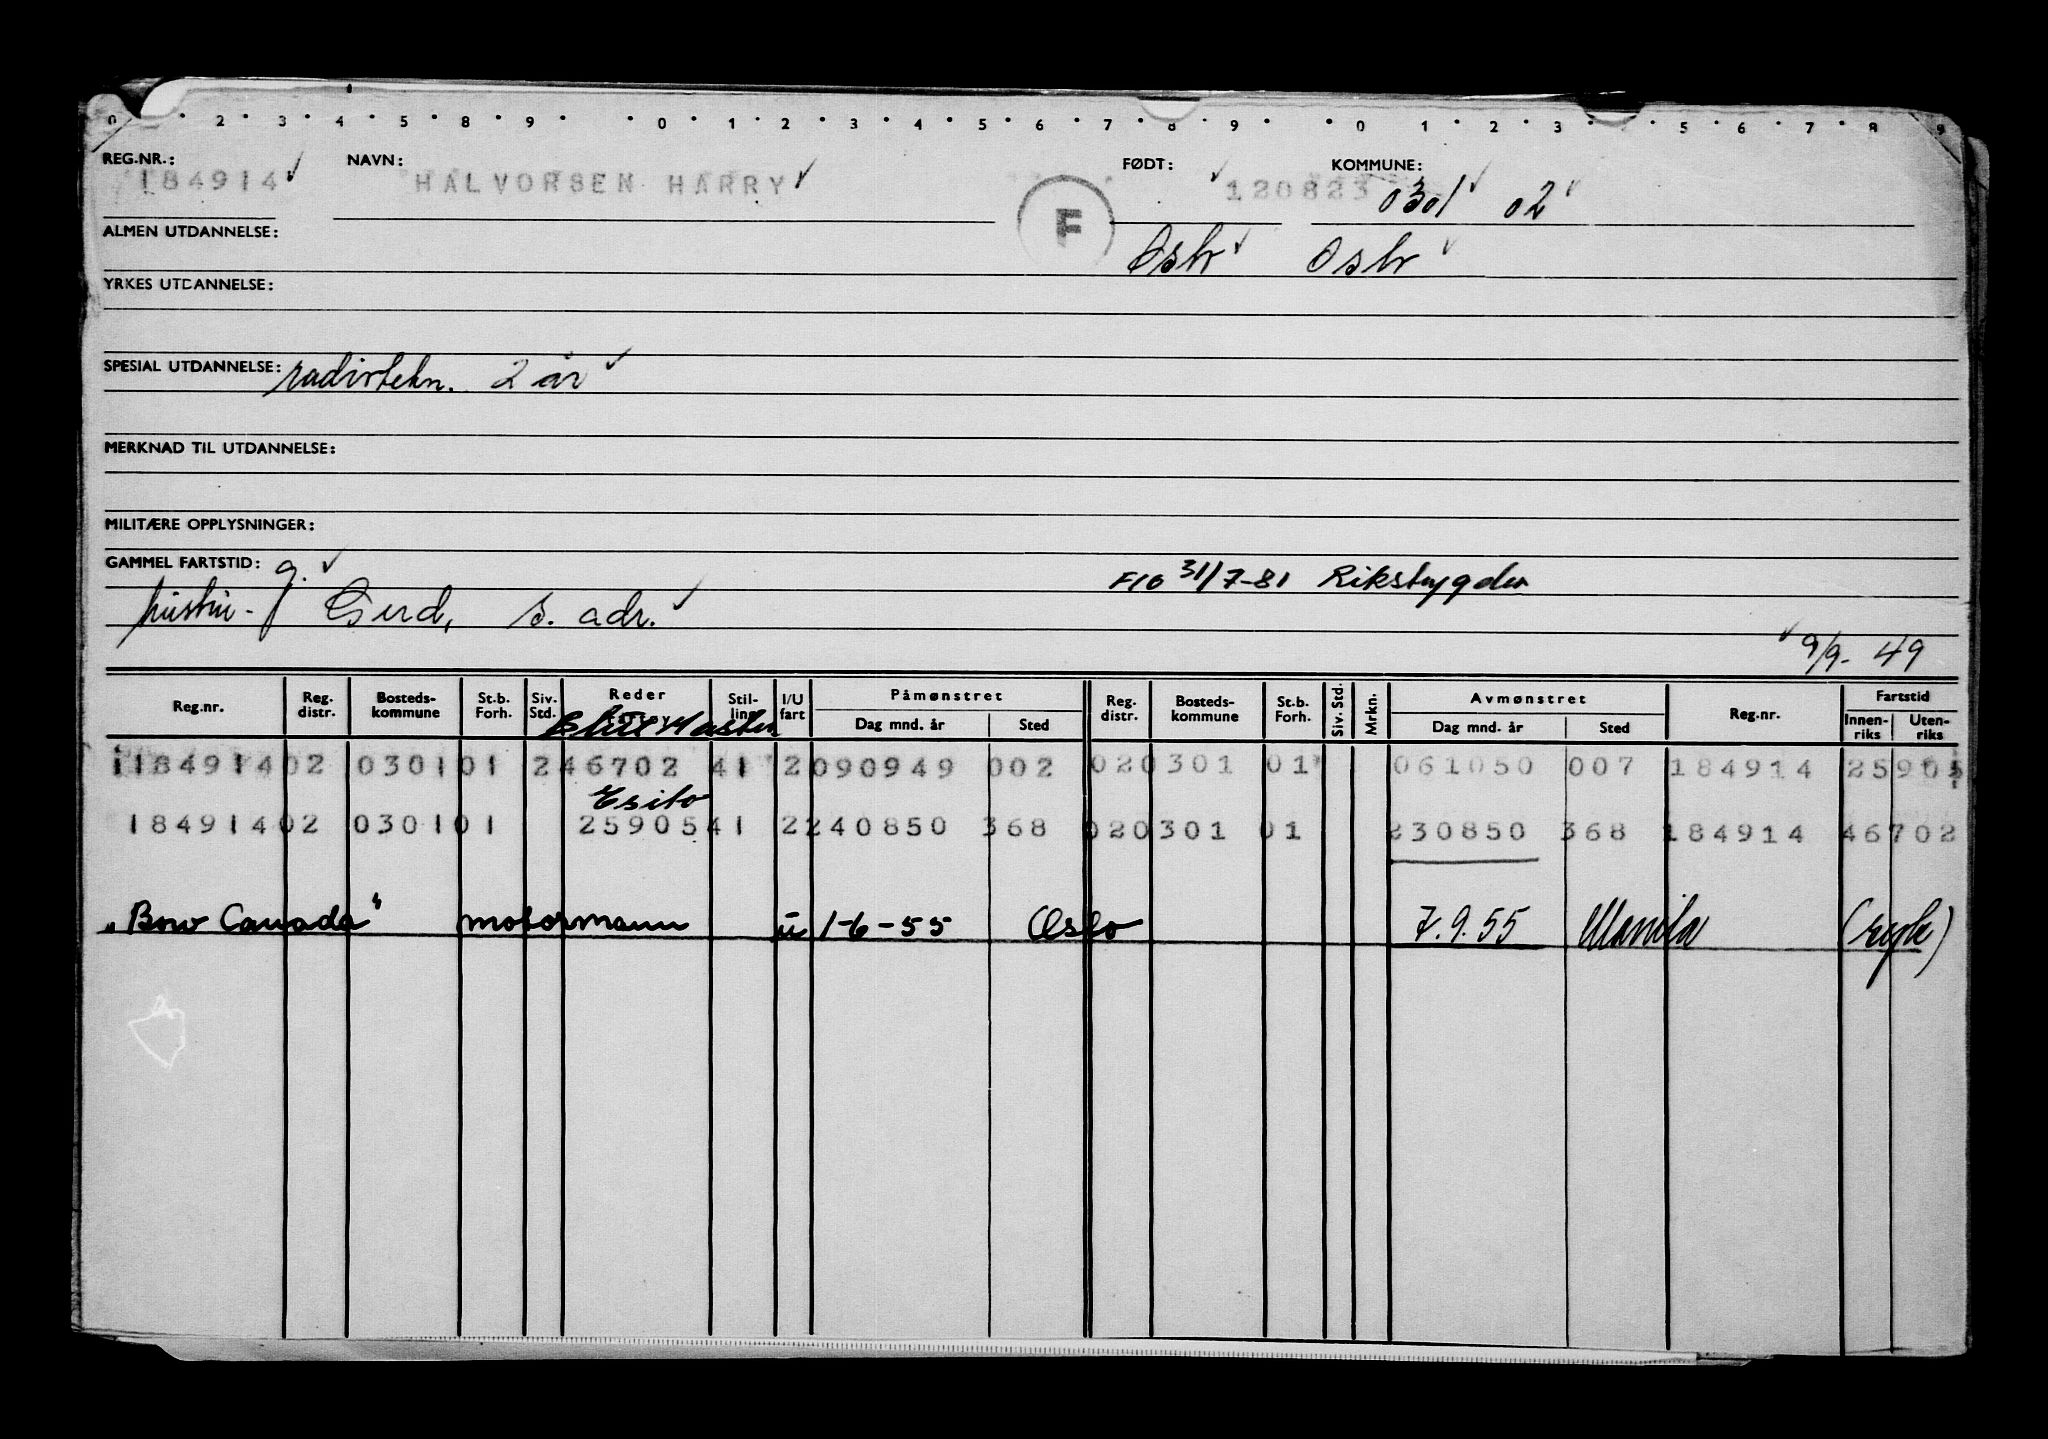 0 · 2 · 3 · 4 · 5 · 8 · 9 · 0 · 1 · 2 · 3 · 4 · 5 · 6 · 7 · 8 · 9 · · 0 · 1 · 2 · 3 · 5 · 6 · 7 · 8 · 9
REG.NR.: NAVN: FØDT: KOMMUNE:
184914 HALVORSEN HARRY 120823 0301 02
F
ALMEN UTDANNELSE: Oslo Oslo
YRKES UTDANNELSE:
SPESIAL UTDANNELSE: radiotekn. 2 år
MERKNAD TIL UTDANNELSE:
MILITÆRE OPPLYSNINGER:
GAMMEL FARTSTID: g. F10 31/7-81 Riksbygden
hustru - Gerd, s. adr.
9/9- 49
Reg.nr. Reg. distr. Bosteds-kommune St.b. Forh. Siv. Std. Reder Stil- I/U fart Påmønstret Dag mnd. år Sted Reg. distr. Bosteds-kommune St.b. Forh. Siv. Std. Mrkn. Avmønstret Dag mnd. år Sted Reg.nr. Fartstid Innen-riks Uten-riks
184914 02 0301 01 2 46702 41 2 090949 002 02 0301 01 061050 007 184914 25905
Esito
184914 02 0301 01 25905 41 2 240850 368 02 0301 01 230850 368 184914 46702
"Bow Canada" motormann u 1-6-55 Oslo 7.9.55 Manila